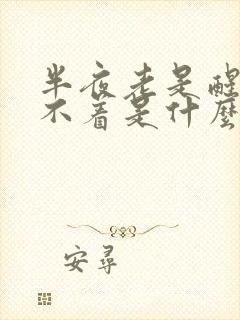 半夜老是醒
不着是什麼
安尋